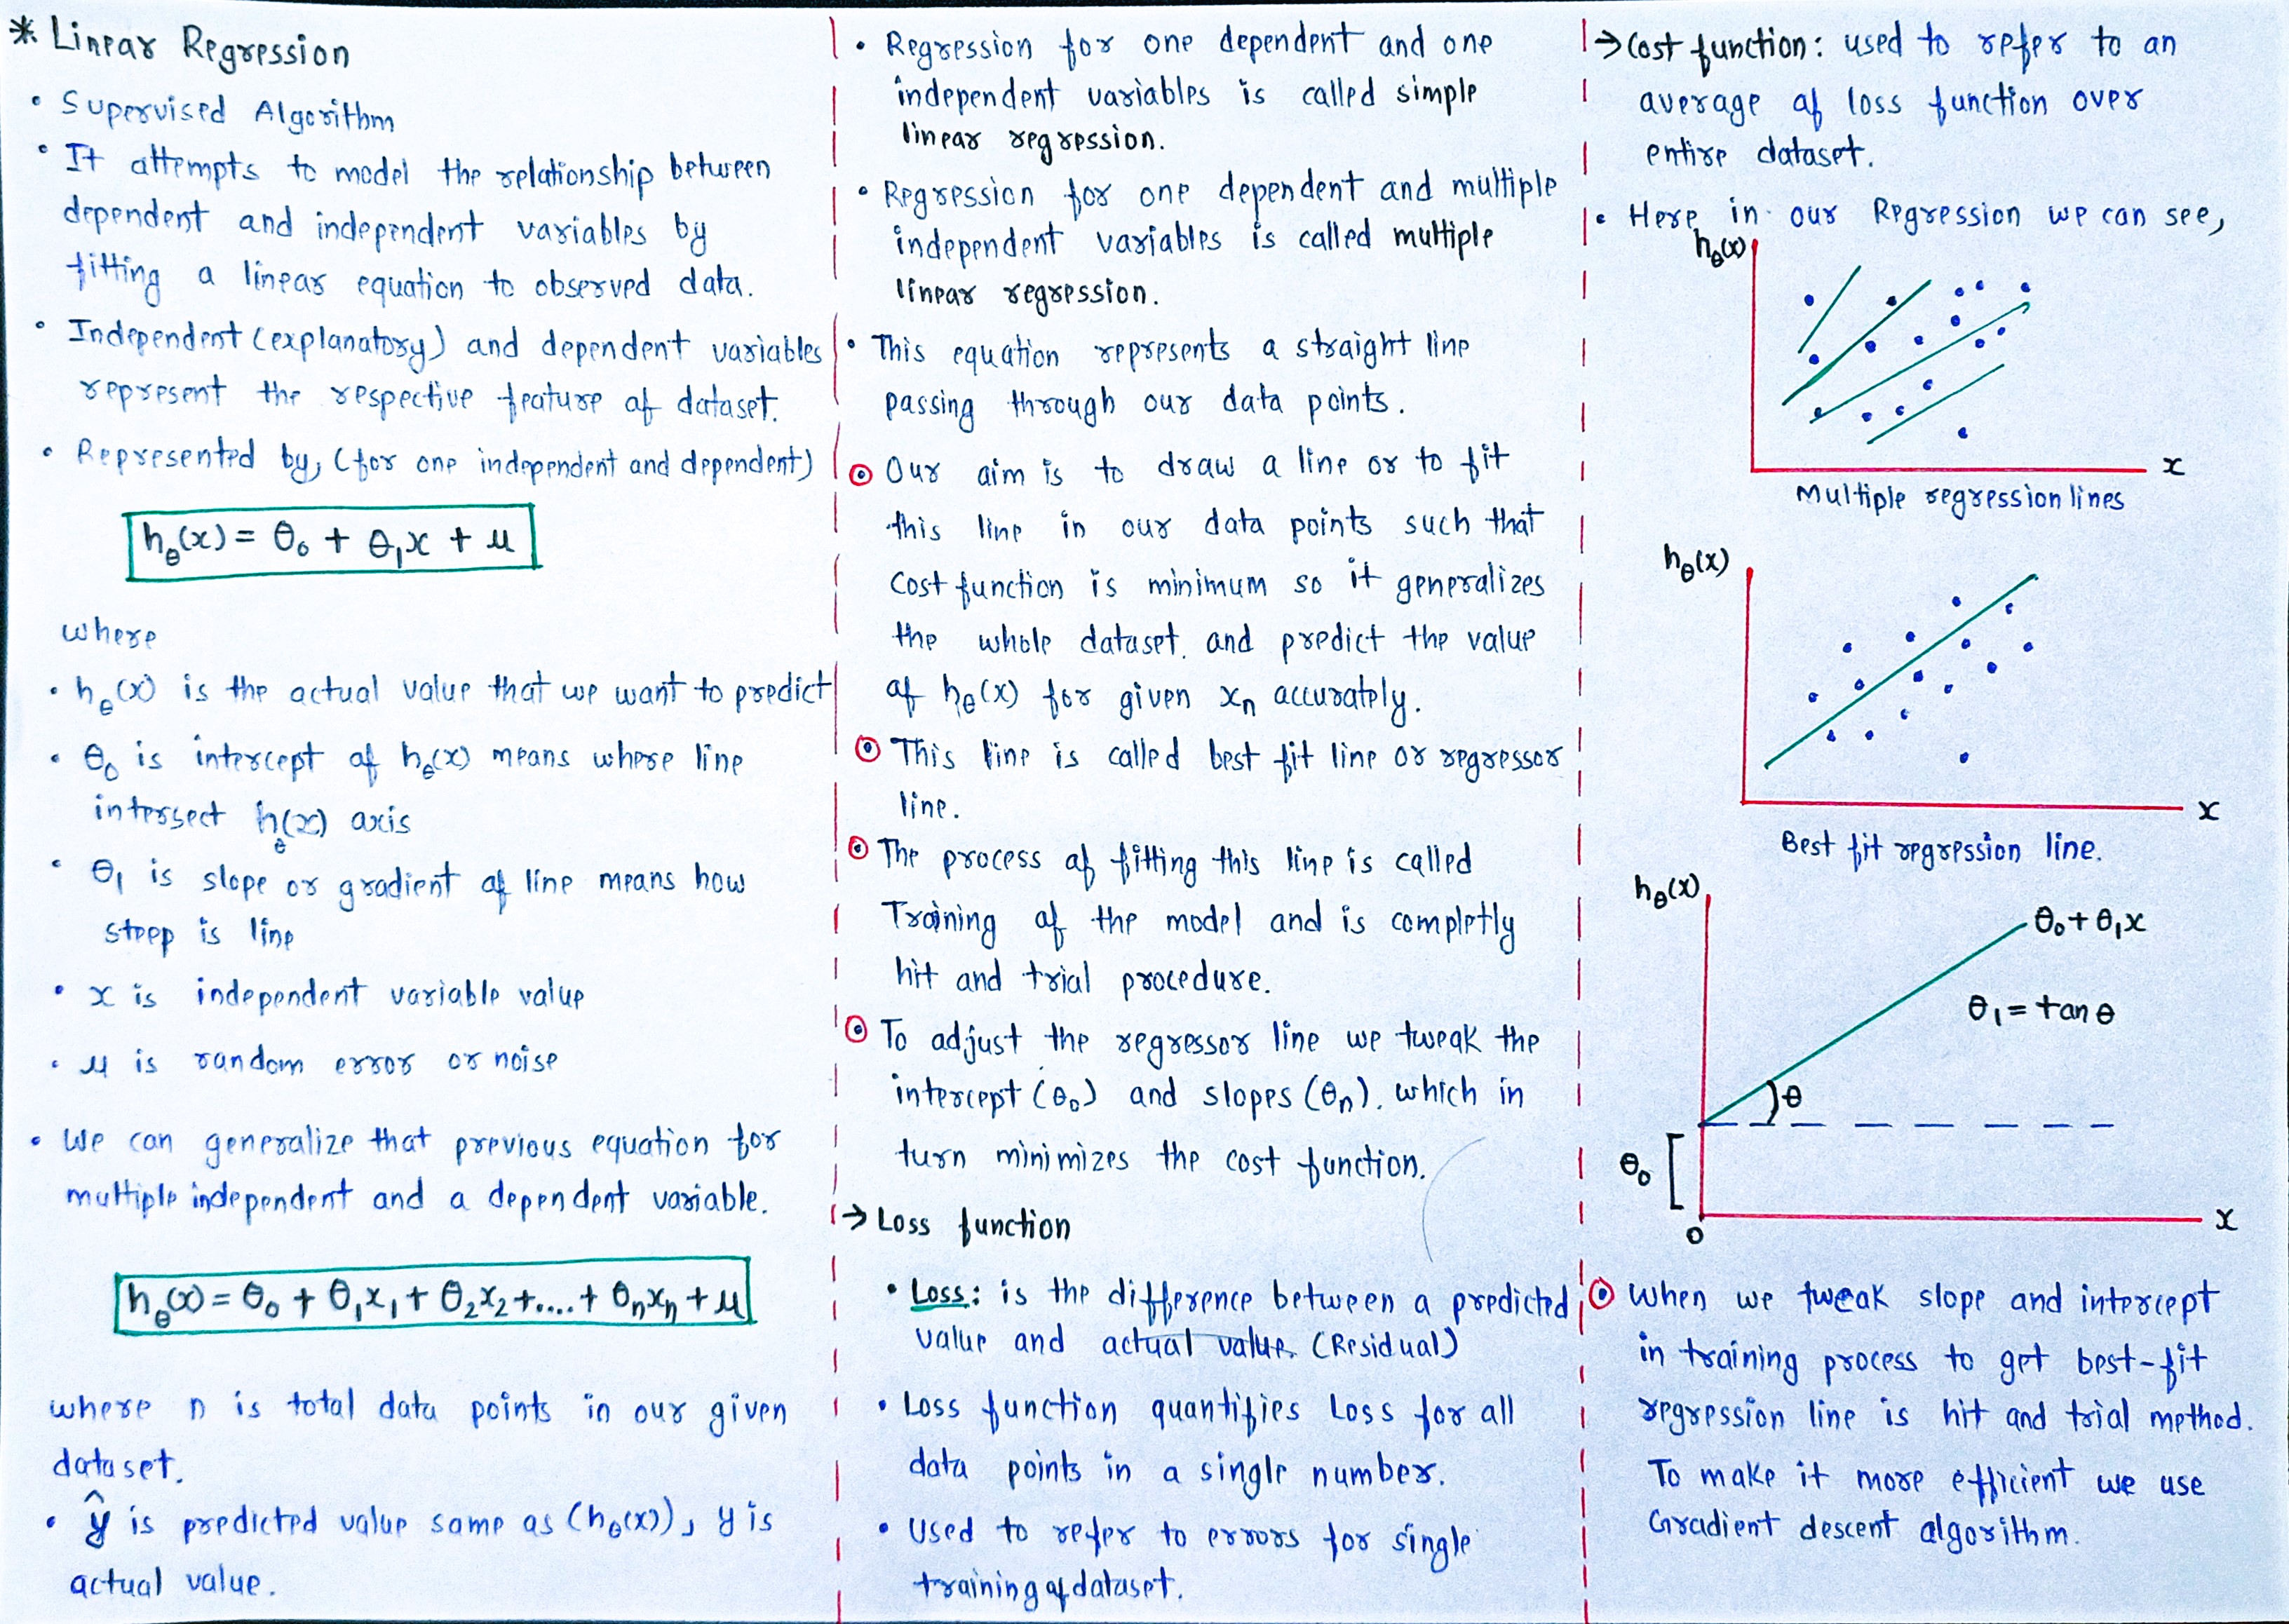 * Linear Regression
• Supervised Algorithm
• It attempts to model the relationship between
dependent and independent variables by
fitting a linear equation to observed data.
• Independent (explanatory) and dependent variables
represent the respective feature of dataset.
• Represented by, (for one independent and dependent)
hθ(x) = θ₀ + θ₁x + μ
where
• hθ(x) is the actual value that we want to predict
• θ₀ is intercept of hθ(x) means where line
intersect hθ(x) axis
• θ₁ is slope or gradient of line means how
steep is line
• x is independent variable value
• μ is random error or noise
• We can generalize that previous equation for
multiple independent and a dependent variable.
hθ(x) = θ₀ + θ₁x₁ + θ₂x₂ + .... + θₙxₙ + μ
where n is total data points in our given
dataset.
• ŷ is predicted value same as (hθ(x)), y is
actual value.
• Regression for one dependent and one
independent variables is called simple
linear regression.
• Regression for one dependent and multiple
independent variables is called multiple
linear regression.
• This equation represents a straight line
passing through our data points.
⊙ Our aim is to draw a line or to fit
this line in our data points such that
Cost function is minimum so it generalizes
the whole dataset. and predict the value
of hθ(x) for given xₙ accurately.
⊙ This line is called best fit line or regressor
line.
⊙ The process of fitting this line is called
Training of the model and is completly
hit and trial procedure.
⊙ To adjust the regressor line we tweak the
intercept (θ₀) and slopes (θₙ). which in
turn minimizes the cost function.
→ Loss function
• Loss: is the difference between a predicted
value and actual value. (Residual)
• Loss function quantifies Loss for all
data points in a single number.
• Used to refer to errors for single
training of dataset.
→ Cost function: used to refer to an
average of loss function over
entire dataset.
• Here in our Regression we can see,
hθ(x)
x
Multiple regression lines
hθ(x)
x
Best fit regression line.
hθ(x)
θ₀ + θ₁x
θ₁ = tan θ
θ
θ₀
x
0
⊙ When we tweak slope and intercept
in training process to get best-fit
regression line is hit and trial method.
To make it more efficient we use
Gradient descent algorithm.